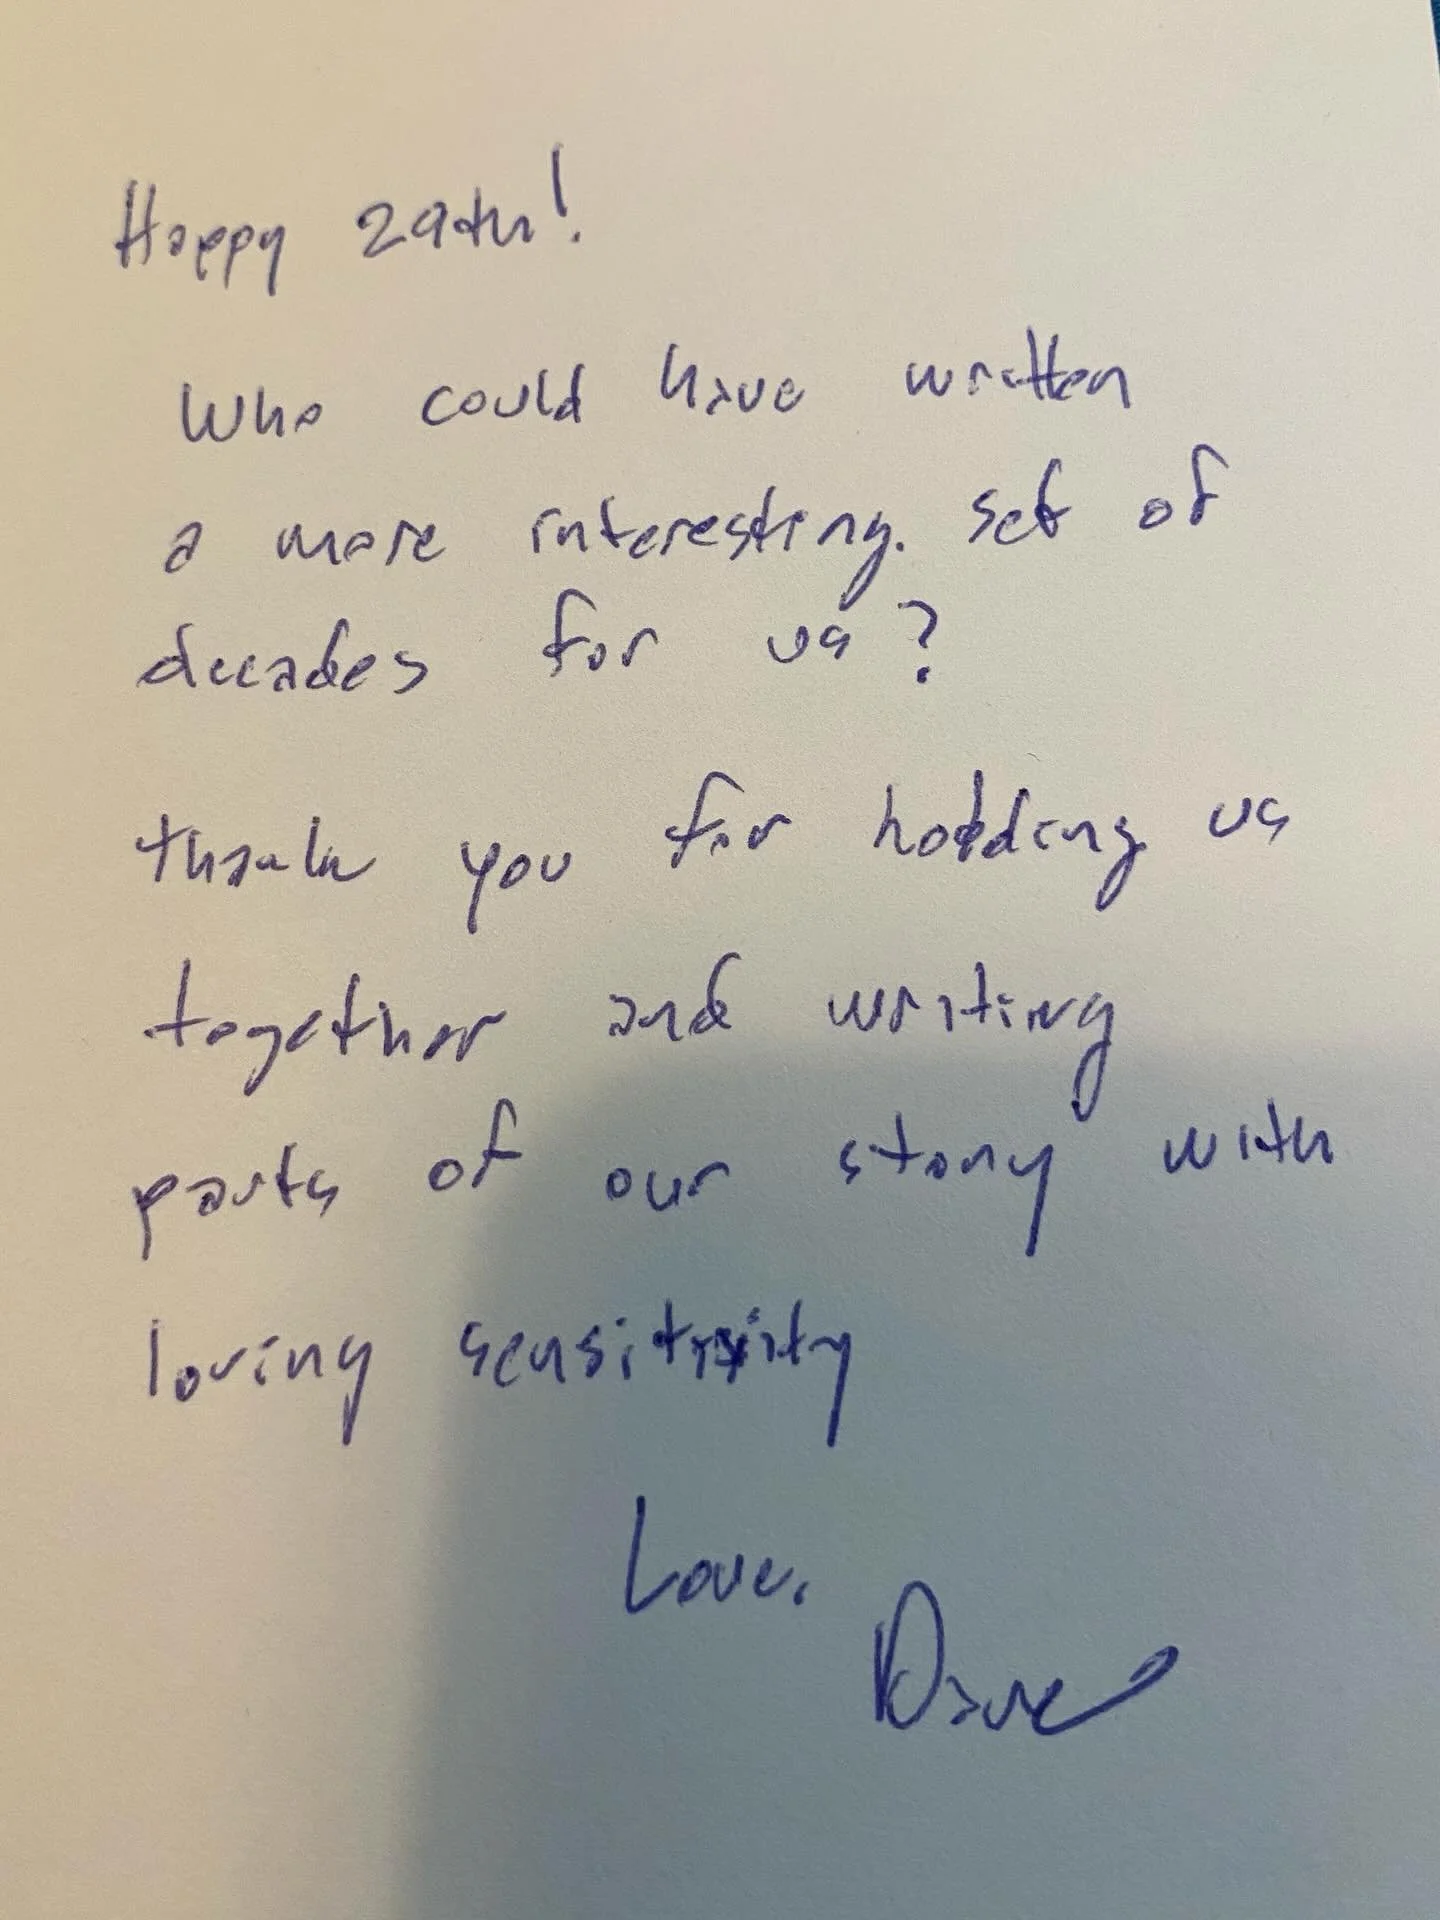 Happy 29th!
Who could have written
a more interesting. set of
decades for us?
thank you for holding us
together and writing
parts of our story with
loving sensitivity
Love,
Dave